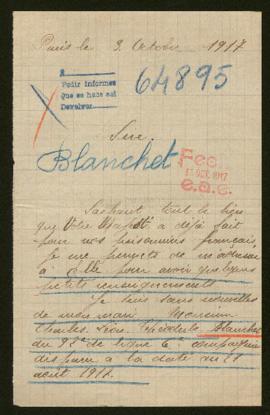 Paris le 3 Octobre 1917
Pedir informes
que se hace así
64895
Sire
Blanchet
Fec.
11 OCT. 1917
e.a.e.
Sachant tout le bien
que Votre Majesté a déjà fait
pour nos prisonniers français,
je me permets de m'adresser
à Elle pour avoir quelques
petits renseignements
Je suis sans nouvelles
de mon mari Monsieur
Charles Léon Théodule Blanchet
du 93e de ligne 6e compagnie
disparu à la date du
août 1917.